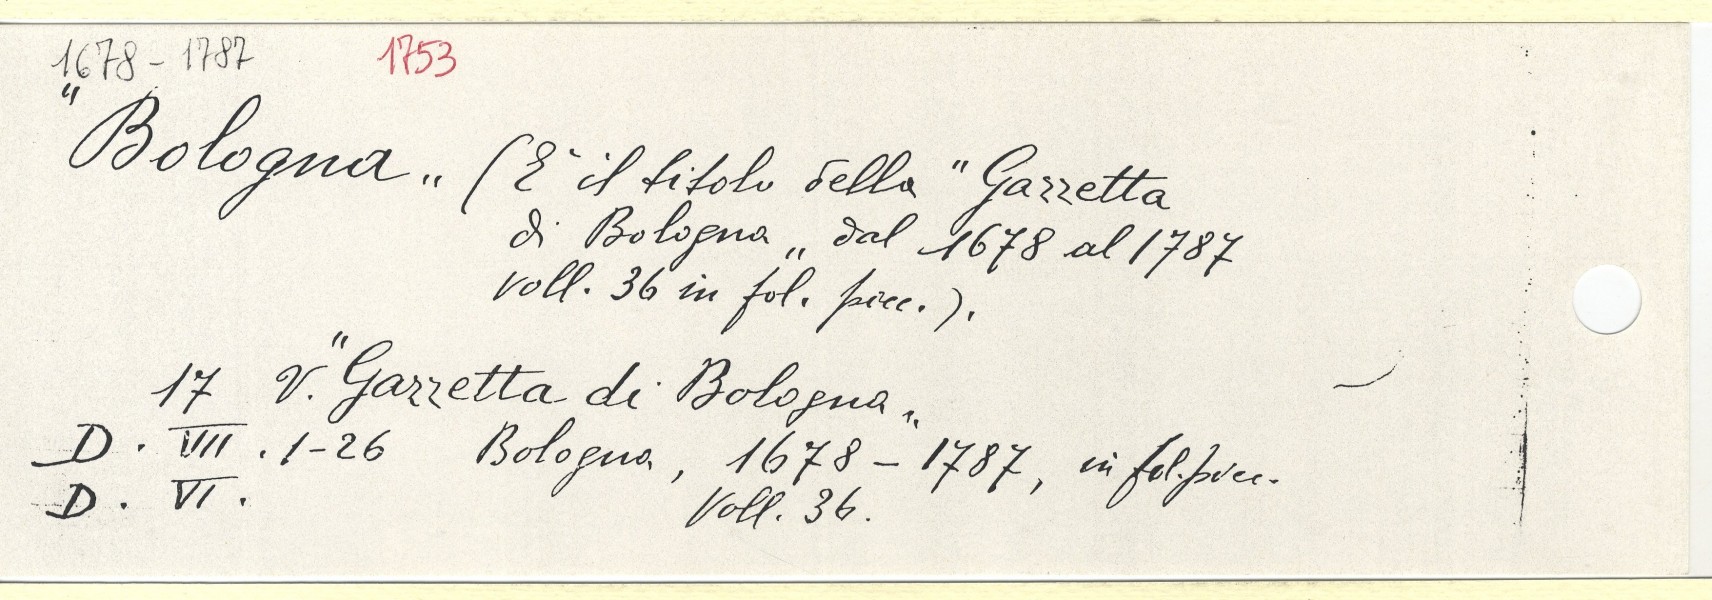 1678 - 1787 1753
"Bologna„ (È il titolo della "Gazzetta
di Bologna„ dal 1678 al 1787
voll. 36 in fol. picc.).
17 V. "Gazzetta di Bologna„
D. VII. 1-26 Bologna, 1678 - 1787, in fol. picc.
D. VI. Voll. 36.